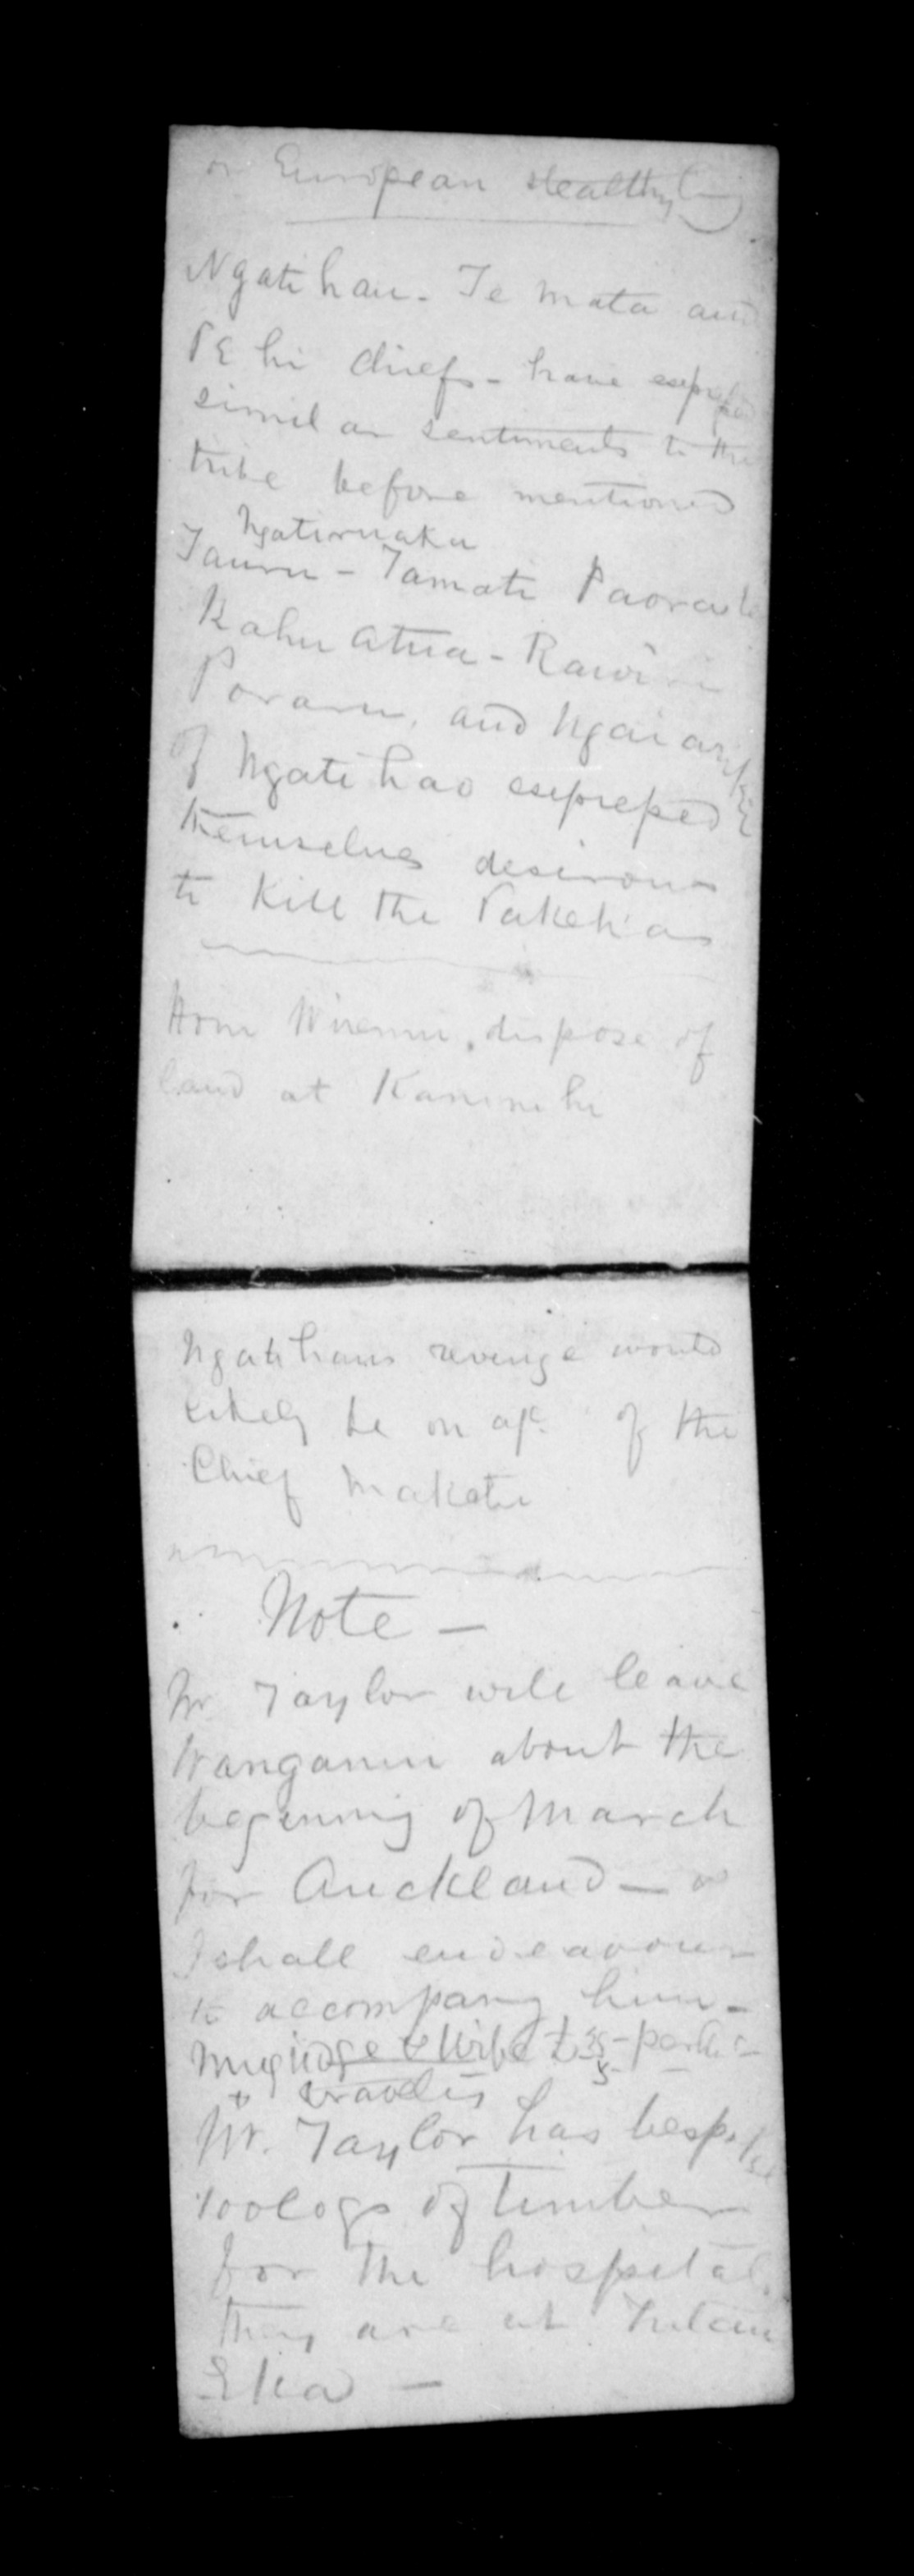 or European stealthy
Ngatihau - Te Mata and
PEhi chiefs - have expressed
similar sentiments to the
tribe before mentioned
Ngatiruaka
Tauru - Tamati Paora
Kahu Atua - Rawiri
Poraru, and Ngai
of Ngatihao expressed
themselves desirous
to Kill the Pakehas
Wiremu, dispose of
land at
Ngatihaus revenge would
likely be on a/c of the
Chief Maketu
Note -
Mr Taylor will leave
Wanganui about the
beginning of March
for Auckland - &
I shall endeavour
to accompany him -
& Wife
Mr. Taylor has bespoke
100 logs of timber
for the hospital
they are at
Eka -